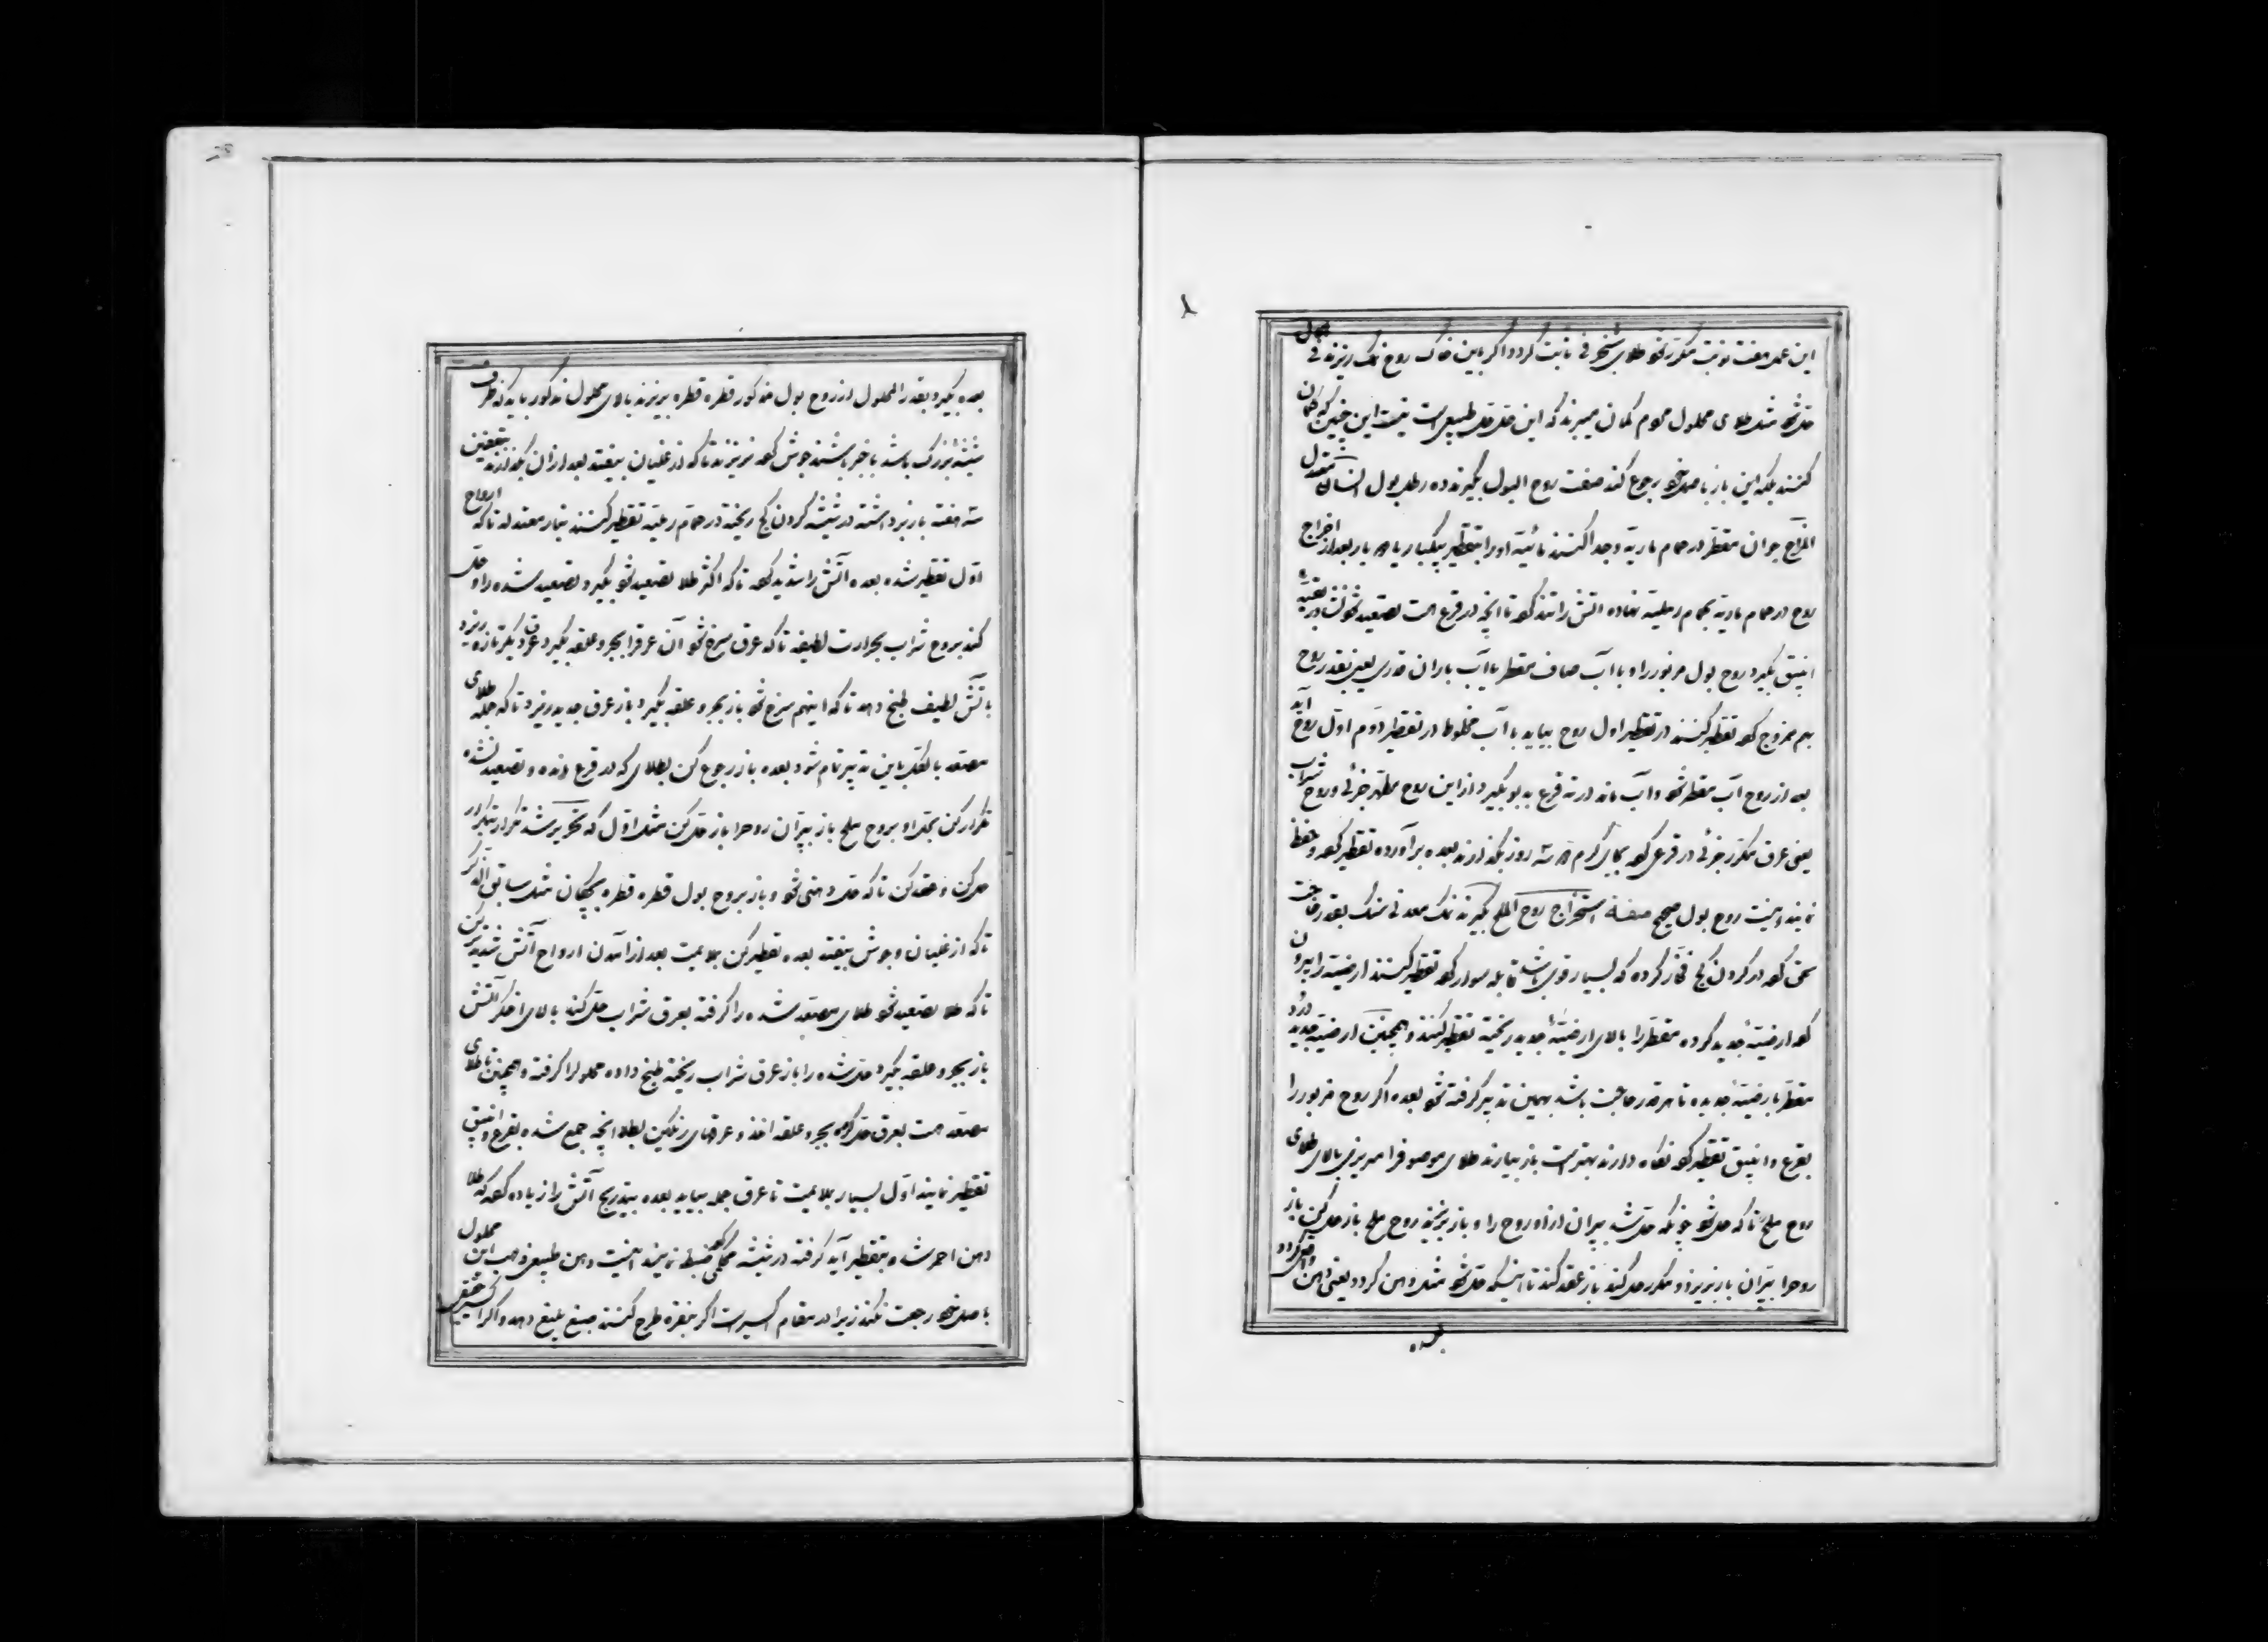 این عمل هفت نوبت مکرر شود طلای شنجرفی ثابت گردد اگر باین خاک روح نمک ریزند فی
حل شود مثل طلای محلول عوام گمان میبرند که این حل حل طبیعی است نیست این چنین که گمان
کنند بلکه این باز باصل خود رجوع کند صفت روح البول بگیرند ده رطل بول انسان معتدل
المزاج جوان مقطر در حمام ماریه وجدا کنند مائیه او را بتقطیر یکبار یا دو بار بعد از اخراج
روح در حمام ماریه بحمام رملیه نهاده آتش را تند کرده تا آنچه در قرع است تصعید شود نشادر بقیه
انبیق بگیر و روح بول مزبور را و با آب صاف مقطر یا آب باران قدری یعنی بقدر روح
بهم ممزوج کرده تقطیر کنند در تقطیر اول روح بیاید با آب مخلوط در تقطیر دوم اول روح آید
بعد از روح آب مقطر شود و آب ماند در ته قرع بد بو بگیر و از این روح مطهر جزئی و روح شراب
یعنی عرق مکرر جزئی در قرعی کرده بجای گرم دو سه روز بگذارند بعده برآورده تقطیر کرده و حفظ
نمایند اینست روح بول صحیح صفة استخراج روح الملح بگیرند نمک معدنی سنگ بقدر حاجت
سحق کرده در گردن کج فخار کرده که بسیار قوی باشد قابله سوار کرده تقطیر کنند ارضیته را بیرون
کرده ارضیهٔ جدید کرده مقطر را بالای ارضیهٔ جدید ریخته تقطیر کنند و همچنین ارضیهٔ جدید
مقطر بارضیهٔ جدیده تا هر قدر حاجت باشد بهمین تدبیر گرفته شود بعده اگر روح مزبور را
بقرع و انبیق تقطیر کرده نگاه دارند بهتر است باز بیارند طلای موصوف را میریزی بالای طلای
روح ملح تا که حل شود چونکه حل شد بپران از او روح را و باز بریزند روح ملح باز حل کن باز
روح را بپران باز بریز و مکرر حل کند باز عقد کند تا اینکه حل شود مثل دهن گردد یعنی دهن
بعده
بعده بگیر و بقدر المحلول از روح بول مذکور قطره قطره بریزند بالای محلول مذکور باید که ظرف
شیشهٔ بزرگ باشد با خبر باشند جوش کرده نریزند تا که از غلیان بیفتد بعد از ان بگذارند بتعفین
سه هفته باز برداشته در شیشه گردن کج ریخته در حمام رملیه تقطیر کنند بنار معتدله تا که ارواح
اول تقطیر شده بعده آتش را شدید کرده تا که اکثر طلا تصعید شود بگیر و تصعید شده را و حل
کند بروح شراب بحرارت لطیفه تا که عرق سرخ شود آن عرق را بجر و علقه بگیر و عرق دیگر تازه ریزد
بآتش لطیف طبخ دهد تا که اینهم سرخ شود باز بجر و علقه بگیر و باز عرق جدید ریزد تا که جمله طلای
مصعد بالکل باین تدبیر تمام شود بعده باز رجوع کن بطلای که در قرع مانده و تصعید نشده
تکرار کن بحل او بروح ملح باز بپران روح را باز حل کن مثل اول که تحریر شد تکرار بتکرار
حل کن و عقد کن تا که حل دهنی شود و باز بروح بول قطره قطره بچکان مثل سابق الذکر
تا که از غلیان و جوش بیفتد بعده تقطیر کن بملایمت بعد از آمدن ارواح آتش شدید کن
تا که طلا تصعید شود طلای مصعد شده را گرفته بعرق شراب حل کند بالای اخگر آتش
باز بجر و علقه بگیر و حل شده را باز عرق شراب ریخته طبخ داده محلول را گرفته و همچنین تا طلای
مصعد است بعرق حل کرده بجر و علقه اخذ و عرقهای رنگین بطلا آنچه جمع شده بقرع و انبیق
تقطیر نمایند اول بسیار بملایمت تا عرق جمله بیاید بعده بتدریج آتش را زیاده کرده که طلا
دهن احمر شده بتقطیر آید گرفته در شیشه محکمی کرده ضبط نمایند اینست دهن طبیعی ذهب این محلول
باصل خود رجعت نکند زیرا در مقام اکسیر است اگر بنقره طرح کنند صبغ بلیغ دهد و اگر اکسیر حقیقی